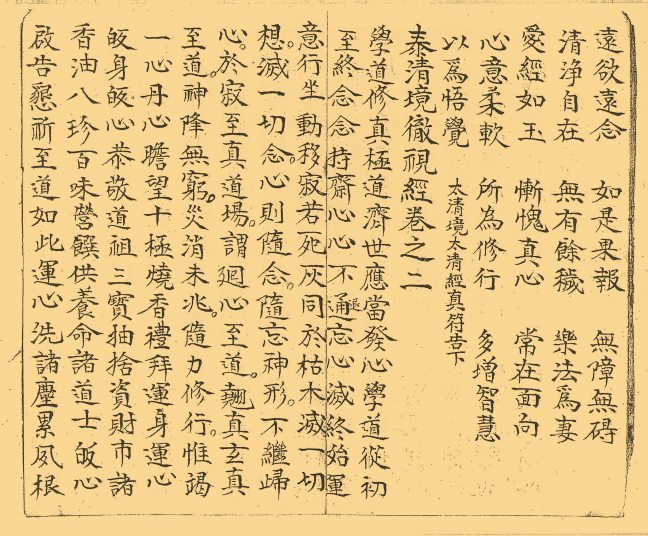 遠欲遠念　如是果報　無障無碍
清浄自在　無有餘穢　樂法爲妻
愛經如玉　慚愧真心　常在面向
心意柔軟　所為修行　多增智慧
以爲悟覺　太清境太清經真符告下
泰清境徹視經卷之二
學道修真極道濟世應當發心學道從初
至終念念持齋心心不通忘心滅終始運
意行坐動移寂若死灰同於枯木滅一切
想滅一切念心則隨念隨忘神形不繼歸
心於寂至真道場謂廻心至道翹真玄真
至道神降無窮災消未兆隨力修行惟竭
一心丹心瞻望十極燒香禮拜運身運心
皈身皈心恭敬道祖三寶抽捨資財市諸
香油八珍百味營饌供養命諸道士皈心
啟告懇祈至道如此運心洗諸塵累夙根